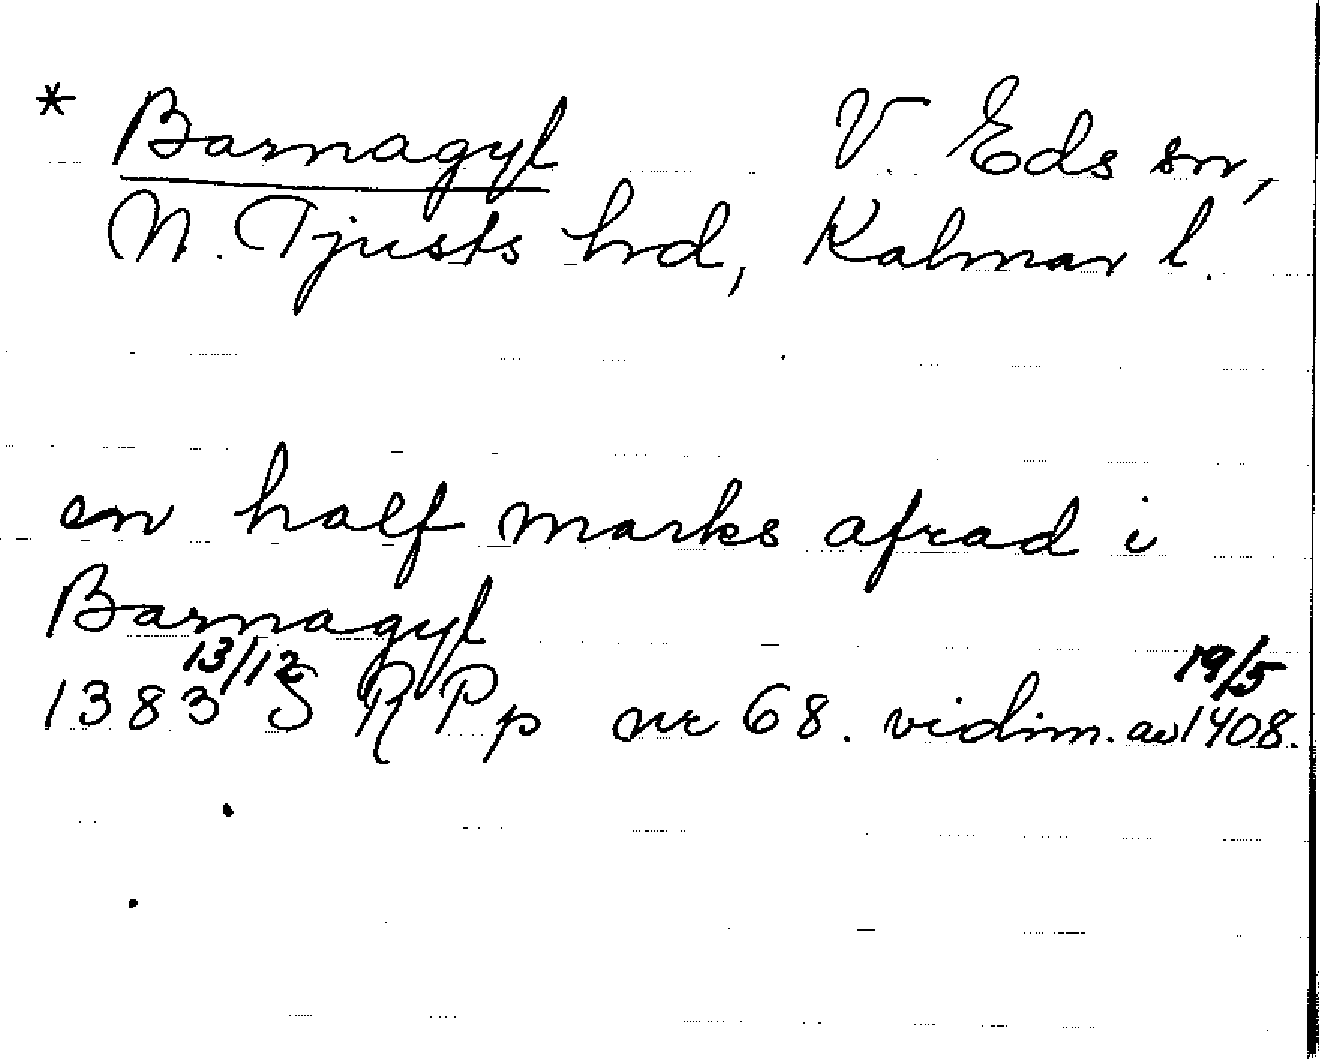 * Barnagyl V. Eds sn,
N. Tjusts hrd, Kalmar l.
en half marks afrad i
Barnagyl
1383 13/12 S R P p nr 68. vidim. av 19/5 1408.